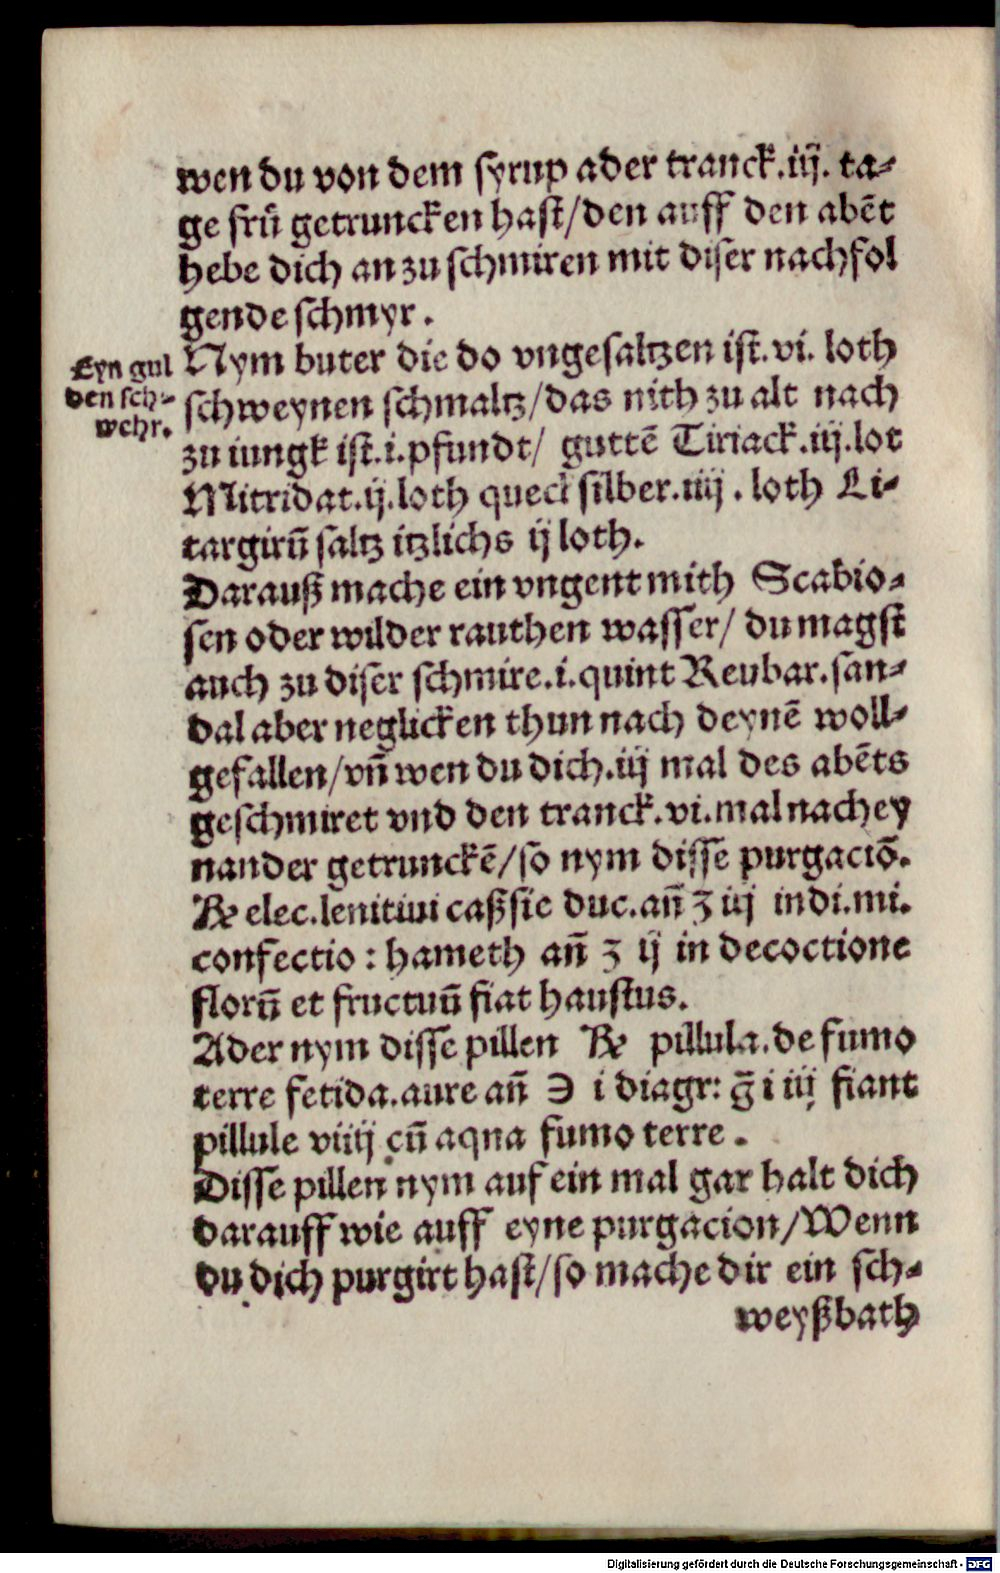 wen du von dem syrup ader tranck.iij. ta-
ge frü getruncken hast/den auff den abēt
hebe dich an zu schmiren mit diser nachfol
gende schmyr.
Eyn gul
den sch-
wehr.
Nym buter die do vngesaltzen ist.vi. loth
schweynen schmaltz/das nith zu alt nach
zu iungk ist.i.pfundt/ guttē Tiriack.iij.lot
Mitridat.ij.loth queck silber.iiij. loth Li-
targirū saltz itzlichs ij loth.
Darauß mache ein vngent mith Scabio-
sen oder wilder rauthen wasser/ du magst
auch zu diser schmire.i.quint Reubar.san-
dal aber neglicken thun nach deynē woll-
gefallen/vn̄ wen du dich.iij mal des abēts
geschmiret vnd den tranck.vi.mal nach ey
nander getrunckē/so nym disse purgaciō.
℞ elec.lenitiui caßsie duc.an̄ ʒ iij indi.mi.
confectio: hameth an̄ ʒ ij in decoctione
florū et fructuū fiat haustus.
Ader nym disse pillen ℞ pillula.de fumo
terre fetida.aure an̄ ℈ i diagr: ḡ i iij fiant
pillule viiij cū aqna fumo terre.
Disse pillen nym auf ein mal gar halt dich
darauff wie auff eyne purgacion/Wenn
du dich purgirt hast/so mache dir ein sch-
weyßbath
Digitalisierung gefördert durch die Deutsche Forschungsgemeinschaft - DFG